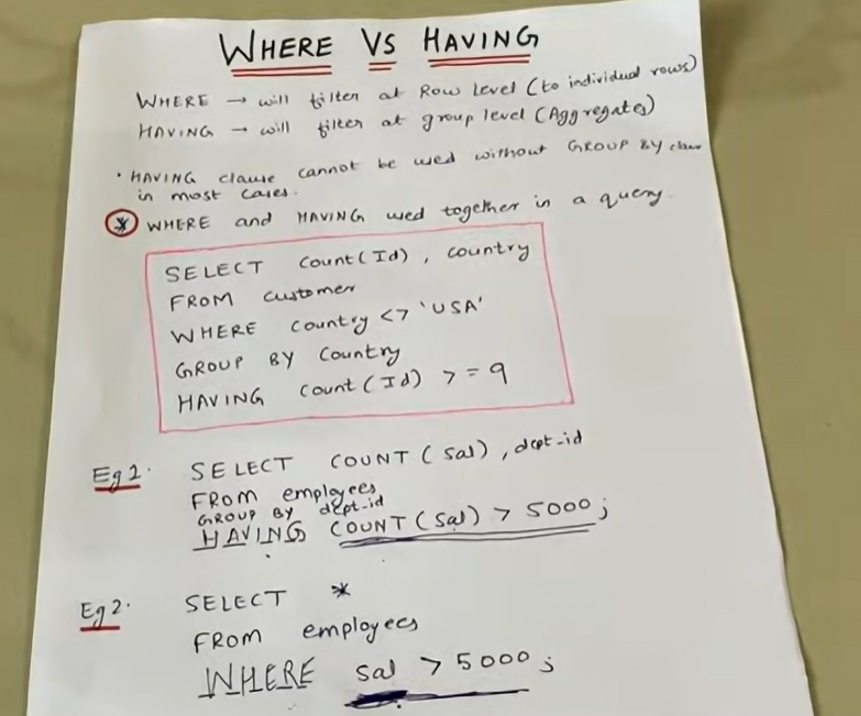 WHERE VS HAVING
WHERE → will filter at Row Level (to individual rows)
HAVING → will filter at group level (Aggregates)
• HAVING clause cannot be used without GROUP BY clause
in most cases.
* WHERE and HAVING used together in a query.
SELECT count(Id), country
FROM customer
WHERE country <> 'USA'
GROUP BY Country
HAVING count(Id) >= 9
Eg 1. SELECT COUNT(sal), dept-id
FROM employees
GROUP BY dept-id
HAVING COUNT(sal) > 5000;
Eg 2. SELECT *
FROM employees
WHERE sal > 5000;